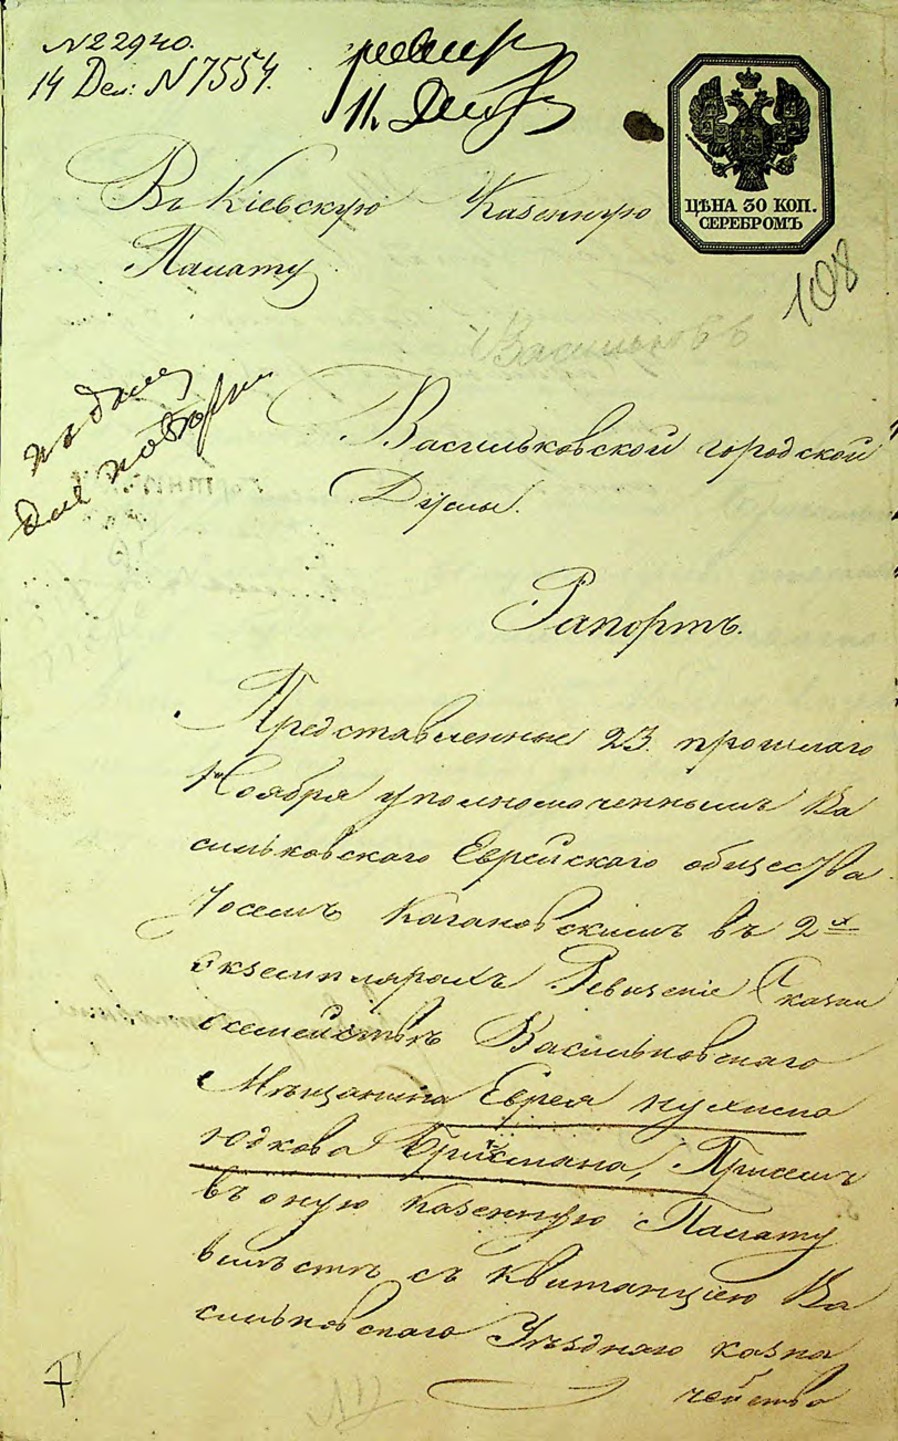 N 22940.
14 Дек: N 7554.
11.
ЦѢНА 30 КОП.
СЕРЕБРОМЪ
108
Въ Кіевскую Казенную
Палату
Васильковъ
Васильковской городской
Думы.
Рапортъ.
Представленные 23. прошлаго
Ноября уполномоченнымъ Ва
сильковскаго Еврейскаго общества
Іосемъ Кагановскимъ въ 2х
екземплярахъ Ревизскіе Сказки
о семействѣ Васильковскаго
Мѣщанина Еврея Нухима
Юдкова
въ оную Казенную Палату
вмѣстѣ съ квитанціею Ва
сильковскаго Уѣзднаго казна
чейства